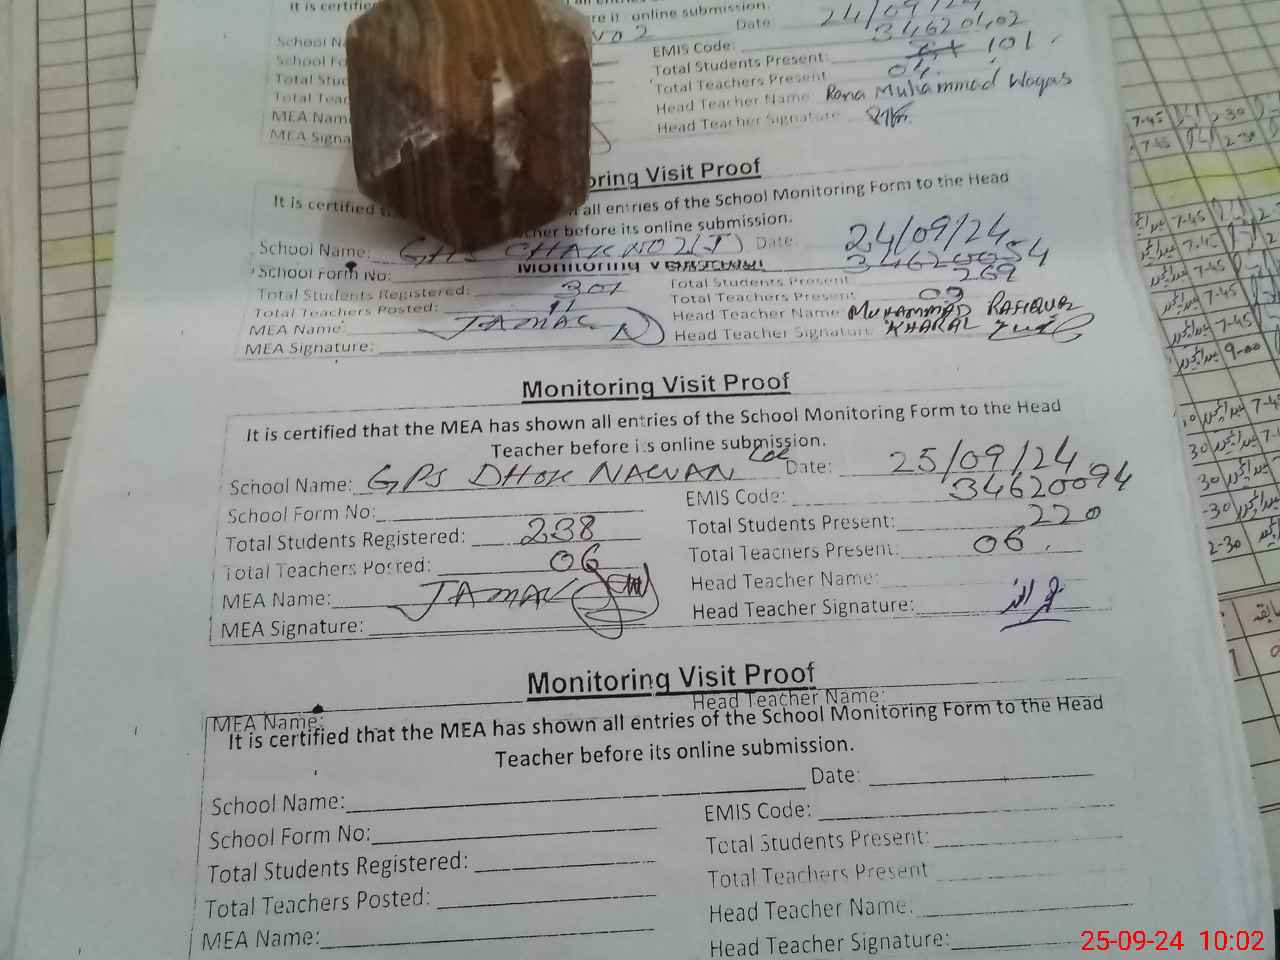 It is certified
re it online submission.
Date: 24/09/24
School Na
VO 2
EMIS Code: 34620102
School Fo
Total Students Present: 101
Total Stud
Total Teachers Present 04
Total Teac
Head Teacher Name Rana Muhammad Waqas
MEA Nam
Head Teacher Signature
MEA Signa
oring Visit Proof
It is certified all entries of the School Monitoring Form to the Head
cher before its online submission.
School Name: GHS CHAK NO 2(J) Date: 24/09/24
School Form No: 34620054
Total Students Registered: 301 Total Students Present 269
Total Teachers Posted: 11 Total Teachers Present 09
MEA Name: JAMAL Head Teacher Name MUHAMMAD RAFIQUE KHARAL
MEA Signature: Head Teacher Signature
Monitoring Visit Proof
It is certified that the MEA has shown all entries of the School Monitoring Form to the Head
Teacher before its online submission.
School Name: GPS DHOK NALVAN Date: 25/09/24
School Form No: EMIS Code: 34620094
Total Students Registered: 238 Total Students Present: 220
Total Teachers Posted: 06 Total Teachers Present: 06
MEA Name: JAMAL Head Teacher Name:
MEA Signature: Head Teacher Signature:
Monitoring Visit Proof
MEA Name: Head Teacher Name:
It is certified that the MEA has shown all entries of the School Monitoring Form to the Head
Teacher before its online submission.
School Name: Date:
School Form No: EMIS Code:
Total Students Registered: Total Students Present:
Total Teachers Posted: Total Teachers Present
MEA Name: Head Teacher Name:
Head Teacher Signature:
25-09-24 10:02